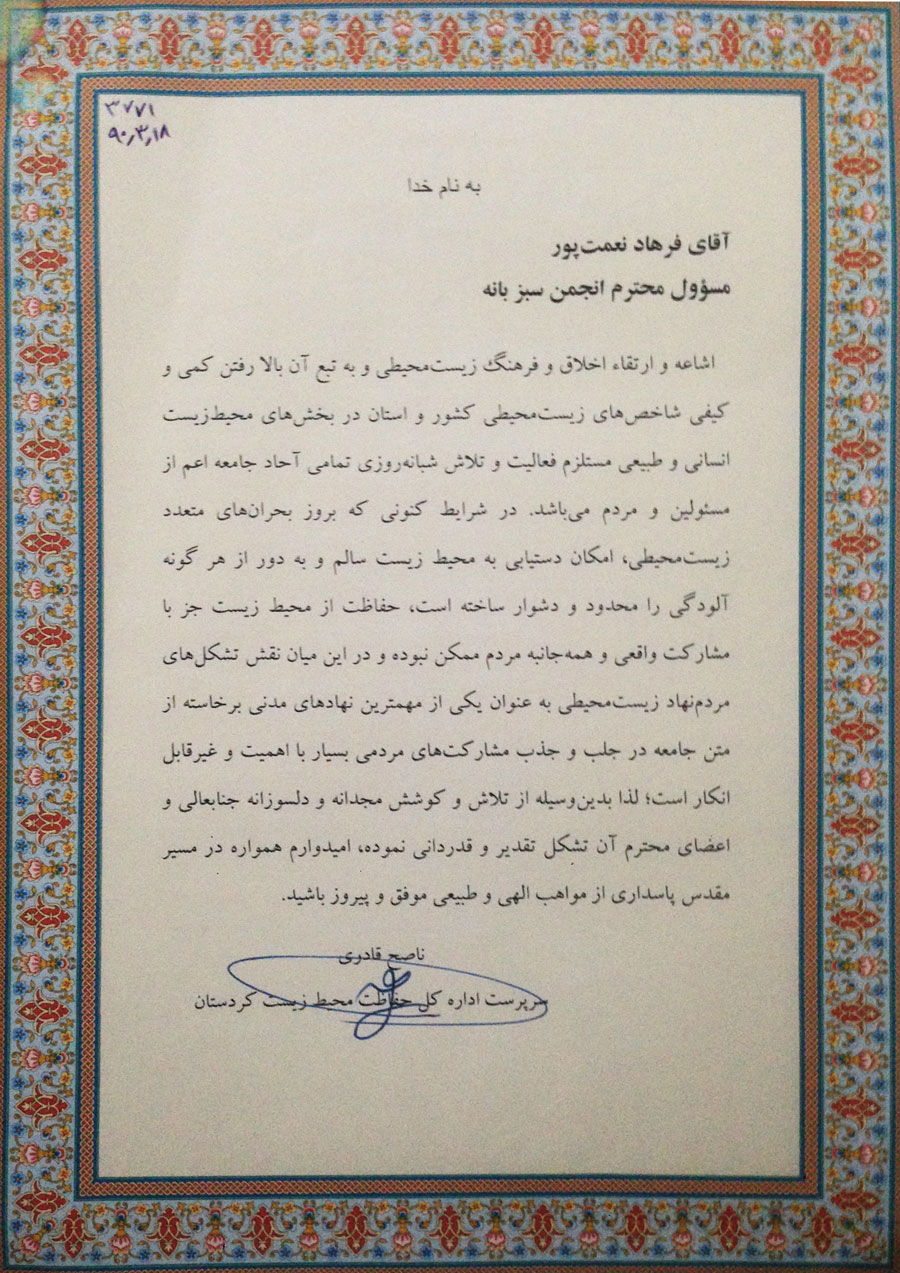 ۳۷۷۱
۹۰٫۳٫۱۸
به نام خدا
آقای فرهاد نعمت‌پور
مسؤول محترم انجمن سبز بانه
اشاعه و ارتقاء اخلاق و فرهنگ زیست‌محیطی و به تبع آن بالا رفتن کمی و
کیفی شاخص‌های زیست‌محیطی کشور و استان در بخش‌های محیط‌زیست
انسانی و طبیعی مستلزم فعالیت و تلاش شبانه‌روزی تمامی آحاد جامعه اعم از
مسئولین و مردم می‌باشد. در شرایط کنونی که بروز بحران‌های متعدد
زیست‌محیطی، امکان دستیابی به محیط زیست سالم و به دور از هر گونه
آلودگی را محدود و دشوار ساخته است، حفاظت از محیط زیست جز با
مشارکت واقعی و همه‌جانبه مردم ممکن نبوده و در این میان نقش تشکل‌های
مردم‌نهاد زیست‌محیطی به عنوان یکی از مهمترین نهادهای مدنی برخاسته از
متن جامعه در جلب و جذب مشارکت‌های مردمی بسیار با اهمیت و غیرقابل
انکار است؛ لذا بدین‌وسیله از تلاش و کوشش مجدانه و دلسوزانه جنابعالی و
اعضای محترم آن تشکل تقدیر و قدردانی نموده، امیدوارم همواره در مسیر
مقدس پاسداری از مواهب الهی و طبیعی موفق و پیروز باشید.
ناصح قادری
سرپرست اداره کل حفاظت محیط زیست کردستان